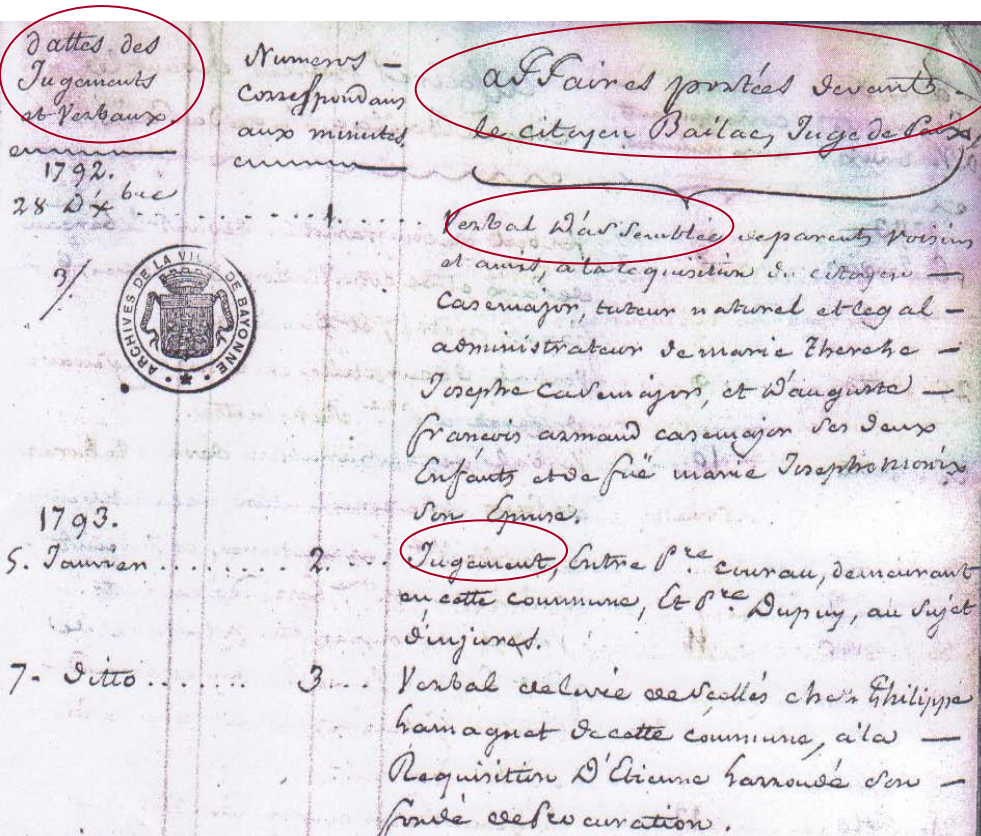 dattes des
Jugements
et Verbaux
Numeros –
Correspondans
aux minutes
affaires portées devant
le citoyen Bailac, Juge de Paix,
1792.
28 Dxbre ........ 1. .... Verbal d'assemblée de parents voisins
et amis, à la requisition du citoyen –
Casemajor, tuteur naturel et legal –
administrateur de marie Therese –
Josephe casemajor, et d'auguste –
françois armand casemajor ses deux
Enfants et de fuë marie Josephe
Son Epouse.
ARCHIVES DE LA VILLE DE BAYONNE
1793.
5. Janvier ........ 2. ... Jugement, Entre Pre courau, demeurant
en cette commune, Et Pre Dupuy, au Sujet
d'injures.
7. Ditto ....... 3... Verbal de levée de scellés chez Philippe
de cette commune, à la –
Requisition D'Etienne Larroudé Son –
fondé de Procuration.